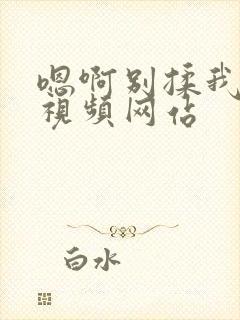 嗯啊别揉我
視頻网站
白水